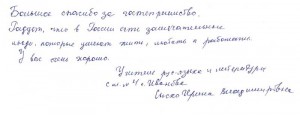 Большое спасибо за гостеприимство.
Гордость, что в России есть замечательные
люди, которые умеют жить, любить и работать.
У вас очень хорошо.
Учитель рус. языка и литературы
с. ш. № 4 г. Иванова
Ирина Владимировна